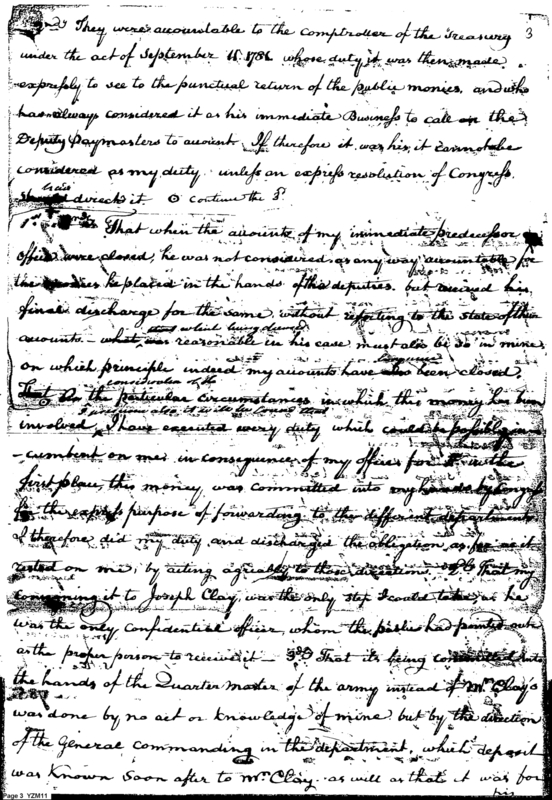 3
They were accountable to the comptroller of the Treasury
under the act of September 11. 1781 whose duty it was then made
expressly to see to the punctual return of the public monies, and who
has always considered it as his immediate Business to call on the
Deputy Paymasters to account. If therefore it was his, it cannot be
considered as my duty unless an express resolution of Congress
had
should direct it ⊙ continue the
That when the accounts of my immediate predecessor in
office were closed, he was not considered as any way accountable for
the monies he placed in the hands of his deputies. but received his
final discharge for the same, without reporting to the state of their
accounts - which being deemed
what was reasonable in his case must also be so in mine
on which principle indeed my accounts have also been closed.
consideration of the
That on the particular circumstances in which this money has been
I presume also it will be found that
involved, I have executed every duty which could be possibly in
-cumbent on me; in consequence of my office; for in the
first place, this money was committed into my hands by Congress
for the express purpose of forwarding to the different departments
I therefore did my duty and discharged the obligation as far as it
rested on me, by acting agreably to those directions. 2d That my
consigning it to Joseph Clay, was the only step I could take, as he
was the only confidential officer, whom the public had pointed out
as the proper person to receive it - 3d That its being committed into
the hands of the Quarter Master of the army instead of Mr. Clay's
was done by no act or knowledge of mine but by the direction
of the General commanding in the department, which deposit
was known soon after to Mr. Clay. as well as that it was for
his
Page 3 YZM11